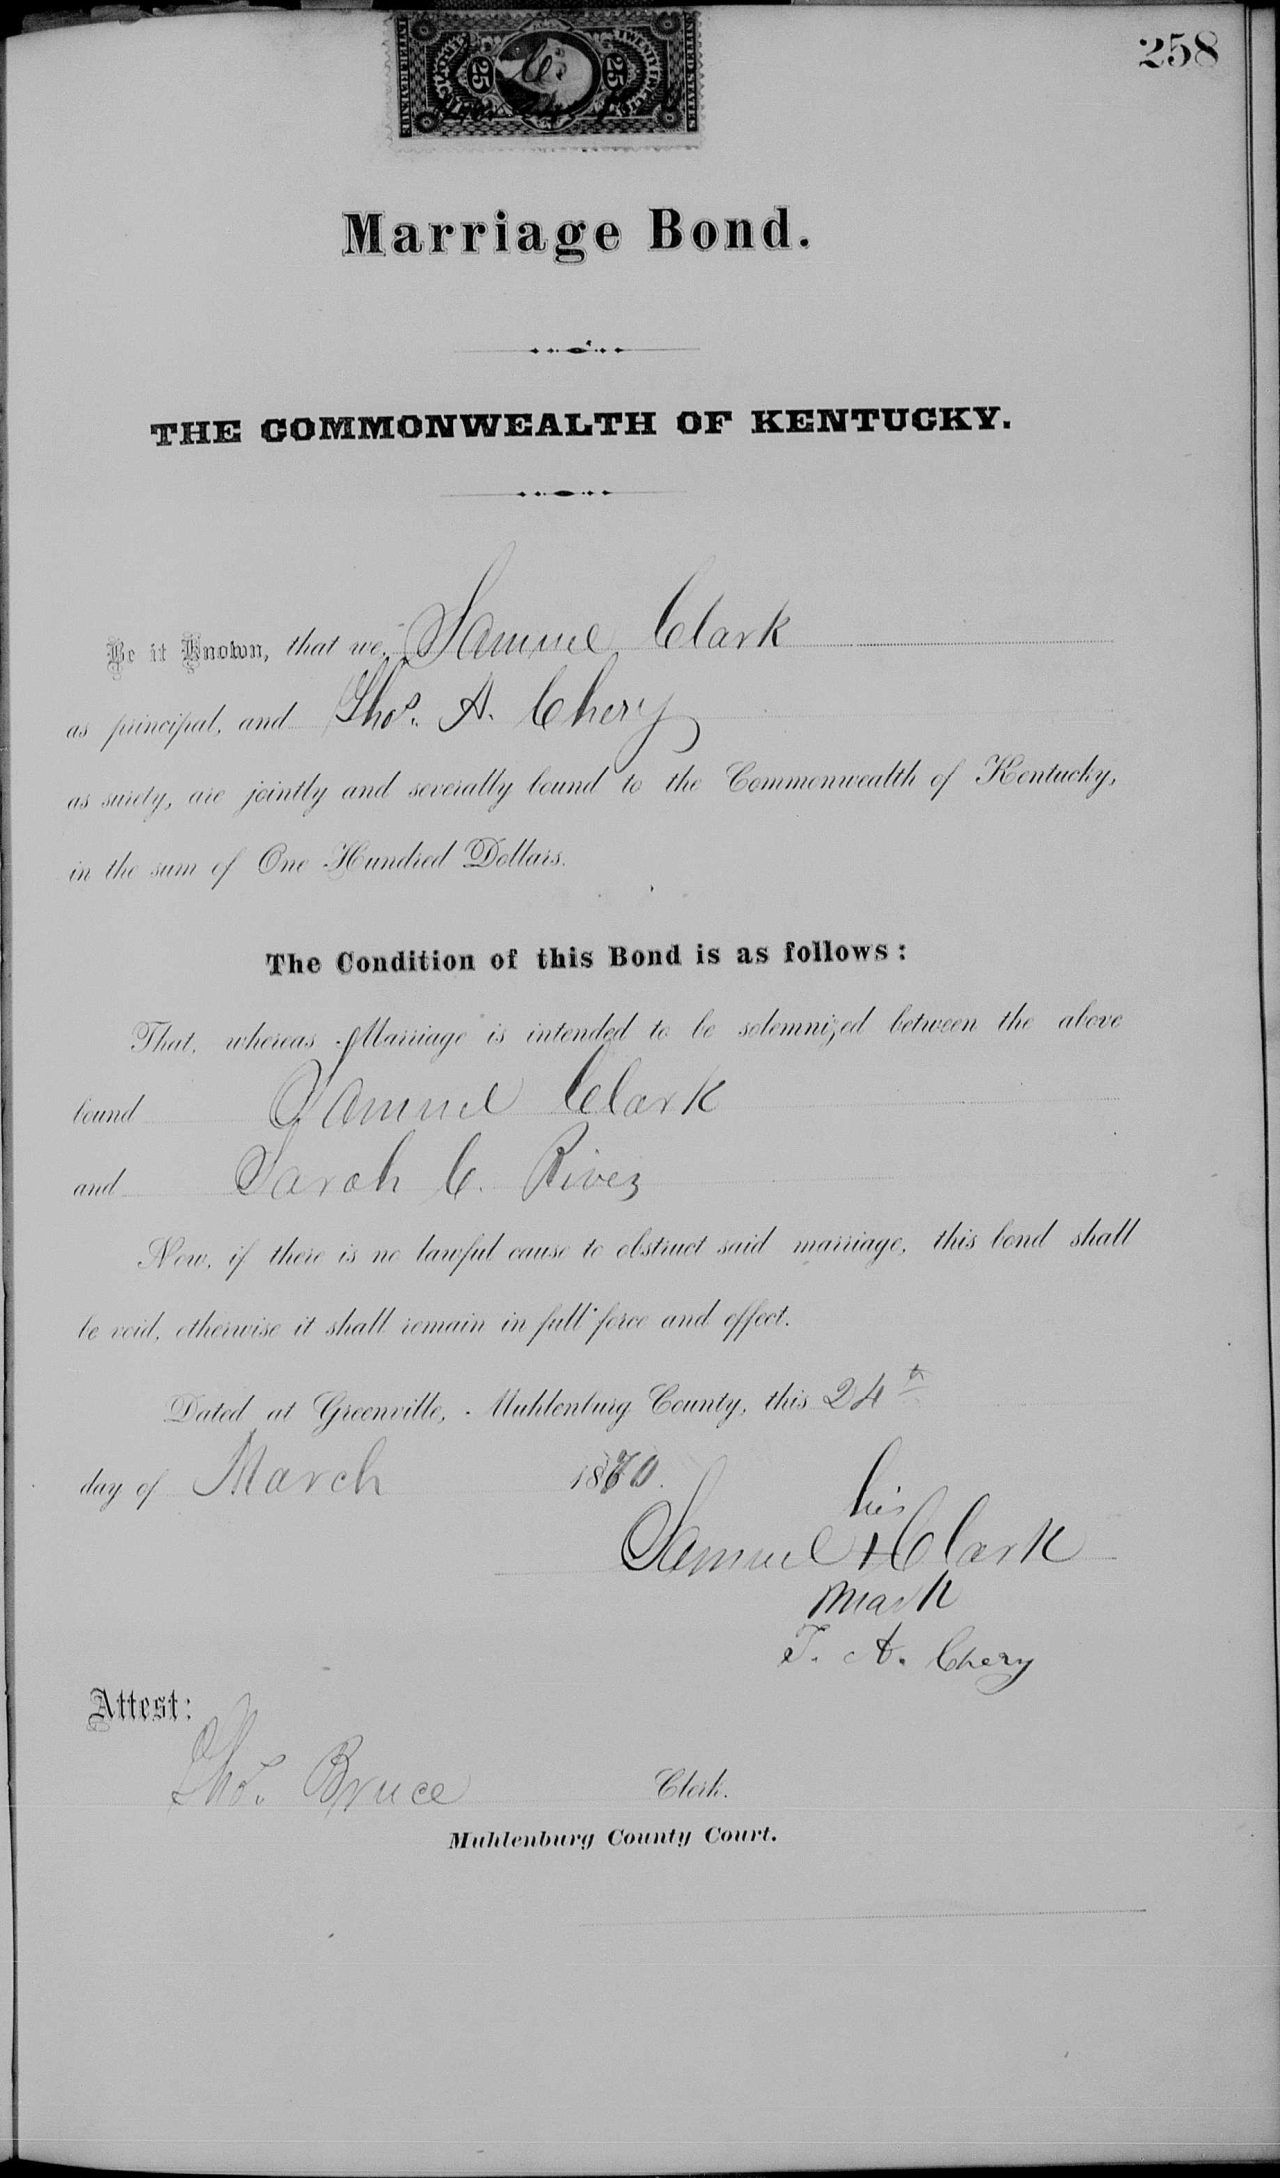 258
UNITED STATES
INTER. REVENUE
25 25
Marriage Bond.
THE COMMONWEALTH OF KENTUCKY.
Be it Known, that we, Samuel Clark
as principal, and Thos. A. Chery
as surety, are jointly and severally bound to the Commonwealth of Kentucky,
in the sum of One Hundred Dollars.
The Condition of this Bond is as follows:
That, whereas Marriage is intended to be solemnized between the above
bound Samuel Clark
and Sarah C. Rives
Now, if there is no lawful cause to obstruct said marriage, this bond shall
be void, otherwise it shall remain in full force and effect.
Dated at Greenville, Muhlenburg County, this 24th
day of March 1870.
his
Samuel + Clark
mark
T. A. Chery
Attest:
Thos. Bruce Clerk.
Muhlenburg County Court.